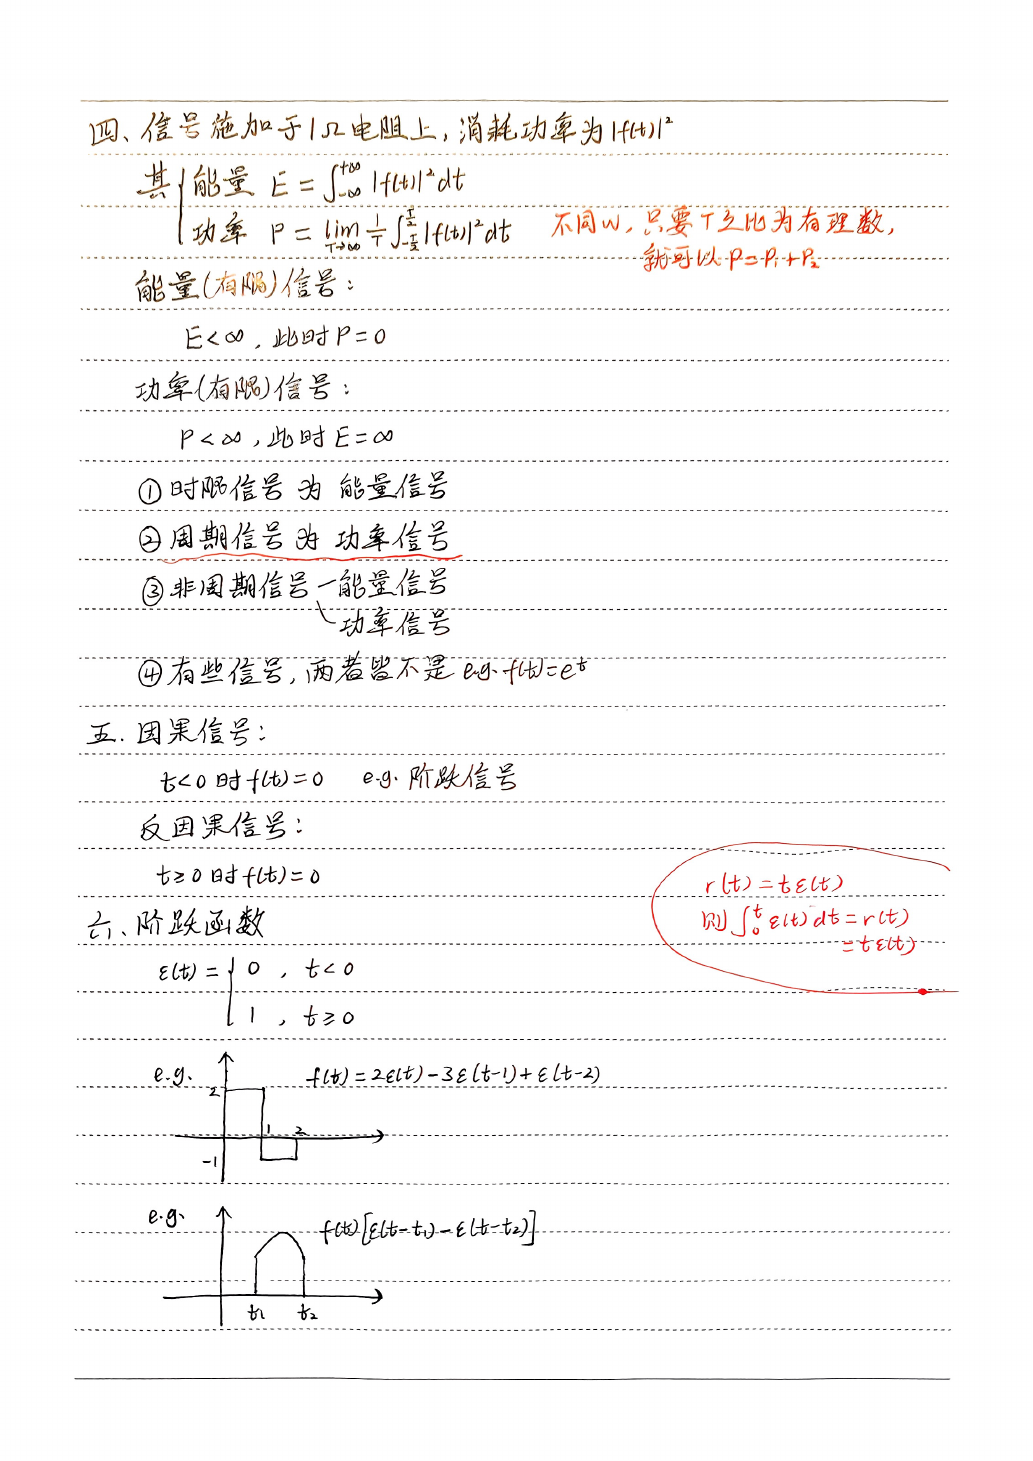 四、信号施加于1Ω电阻上，消耗功率为|f(t)|²
其 { 能量 E = ∫_{-∞}^{+∞} |f(t)|² dt
功率 P = lim_{T→∞} 1/T ∫_{-T/2}^{T/2} |f(t)|² dt
不同W，只要T之比为有理数，
就可以 P=P₁+P₂
能量(有限)信号：
E<∞，此时P=0
功率(有限)信号：
P<∞，此时E=∞
①时限信号为 能量信号
②周期信号为 功率信号
③非周期信号 — 能量信号
\ 功率信号
④有些信号，两者皆不是 e.g. f(t)=e^t
五．因果信号：
t<0时f(t)=0 e.g. 阶跃信号
反因果信号：
t≥0时f(t)=0
r(t)=tε(t)
则∫₀^t ε(t)dt=r(t)
=tε(t)
六、阶跃函数
ε(t)= { 0 , t<0
1 , t≥0
e.g. f(t)=2ε(t)-3ε(t-1)+ε(t-2)
2
1 2
-1
e.g. f(t)[ε(t-t₁)-ε(t-t₂)]
t₁ t₂